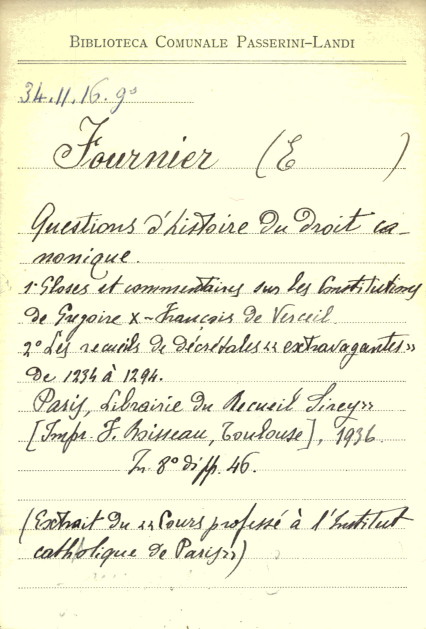 BIBLIOTECA COMUNALE PASSERINI-LANDI
34.11.16. 9º
Fournier (E )
Questions d'histoire du droit ca-
nonique.
1º Gloses et commentaires sur les Constitutions
de Gregoire X - François de Verceil.
2º Les recueils de décrétales « extravagantes »
de 1234 à 1294.
Paris, Librairie du Recueil Sirey »
[Impr. F. Boisseau, Toulouse], 1936.
In 8º di pp. 46.
(Extrait du « Cours professé à l'Institut
catholique de Paris »)